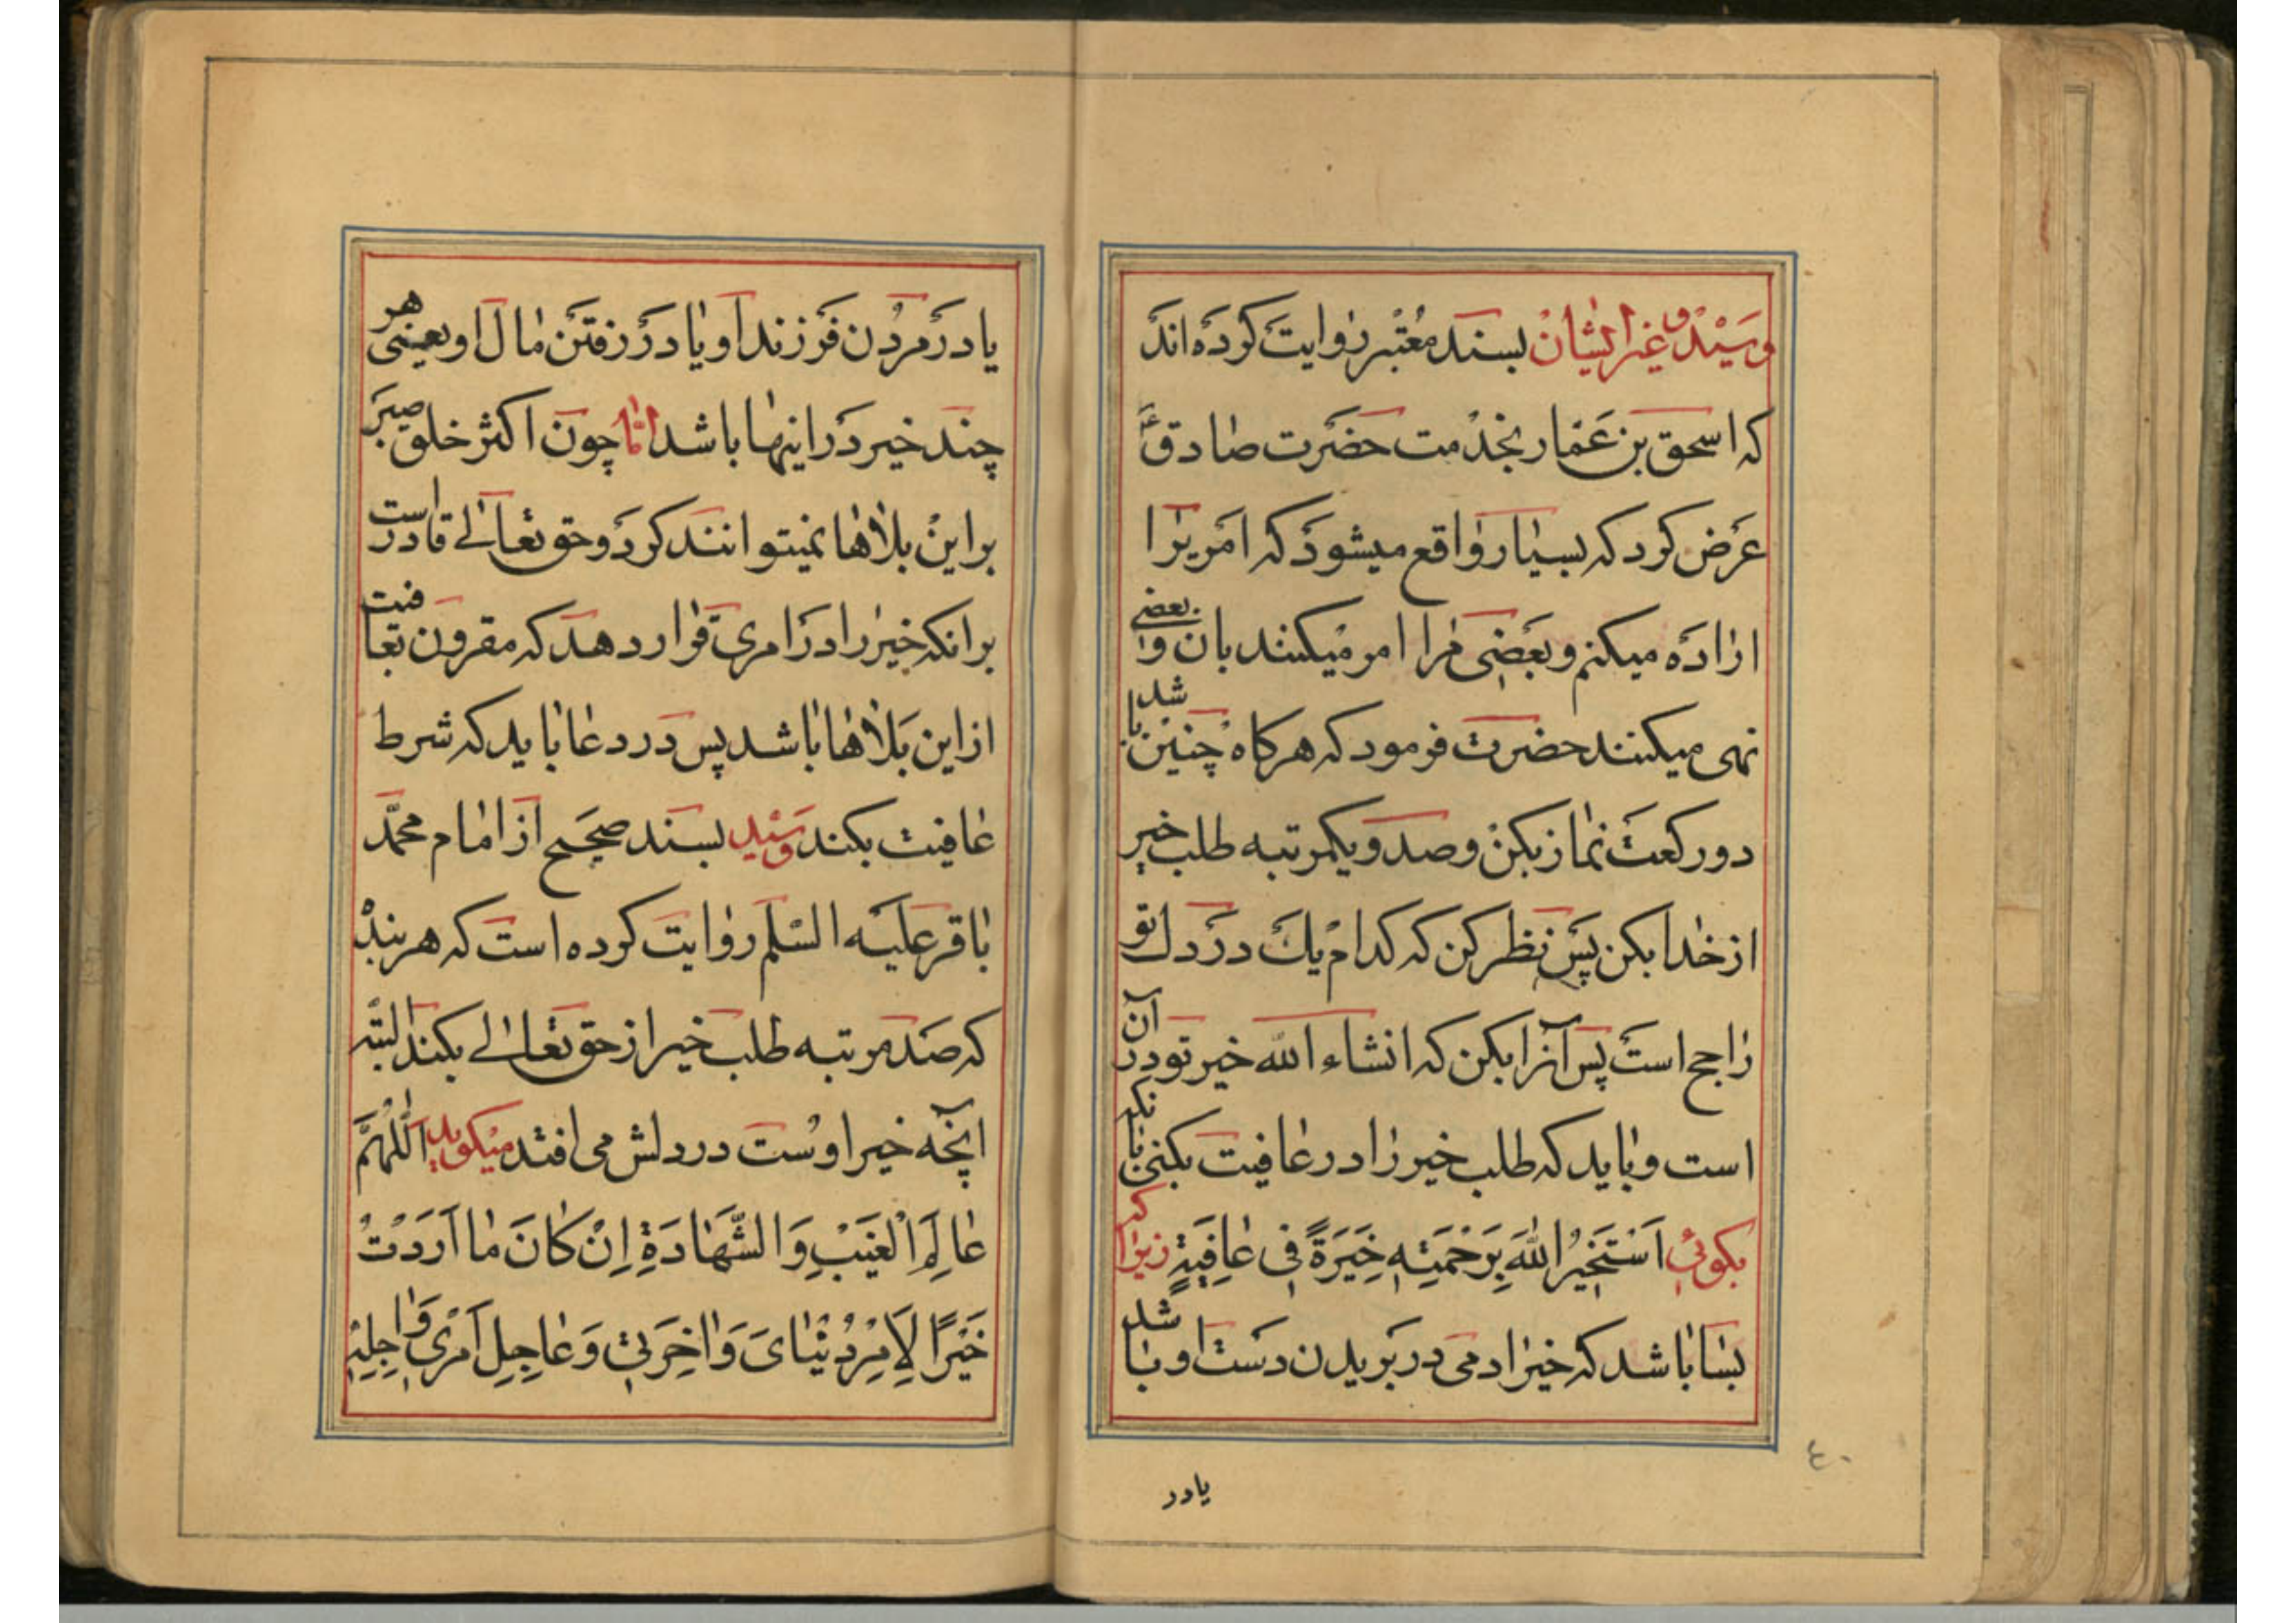 وسید و غیر ایشان بسند معتبر روایت کرده اند
که اسحق بن عمار بخدمت حضرت صادق ع
عرض کرد که بسیار واقع میشود که امریرا
اراده میکنم و بعضی مرا امر میکنند بان و بعضی
نهی میکنند حضرت فرمود که هرکاه چنین باشد
دو رکعت نماز بکن و صد و یکمرتبه طلب خیر
از خدا بکن پس نظر کن که کدام یک در دل تو
راجح است پس آنرا بکن که انشاء الله خیر تو در آن
است و باید که طلب خیر را در عافیت بکنی بانکه
بکوئی اَسْتَخیرُ اللهَ بِرَحْمَتِهِ خِیَرَةً فی عافِیَةٍ زیرا که
بسا باشد که خیر ادمی در بریدن دست او باشد
یا در
۴۰
یا در مردن فرزند او یا در رفتن مال او یعنی هر
چند خیر در اینها باشد اما چون اکثر خلق صبر
بر این بلاها نمیتوانند کرد و حق تعالی قادر است
بر انکه خیر را در امری قرار دهد که مقرون بعافیت
از این بلاها باشد پس در دعا باید که شرط
عافیت بکند و سید بسند صحیح از امام محمد
باقر علیه السلم روایت کرده است که هر بنده
که صد مرتبه طلب خیر از حق تعالی بکند البته
انچه خیر اوست در دلش می افتد میکوید اَللّٰهُمَّ
عالِمَ الْغَیْبِ وَالشَّهادَةِ اِنْ کانَ ما اَرَدْتُ
خَیْرًا لِاَمْرِ دُنْیایَ وَاخِرَتی وَعاجِلِ اَمْری وَاجِلِهِ